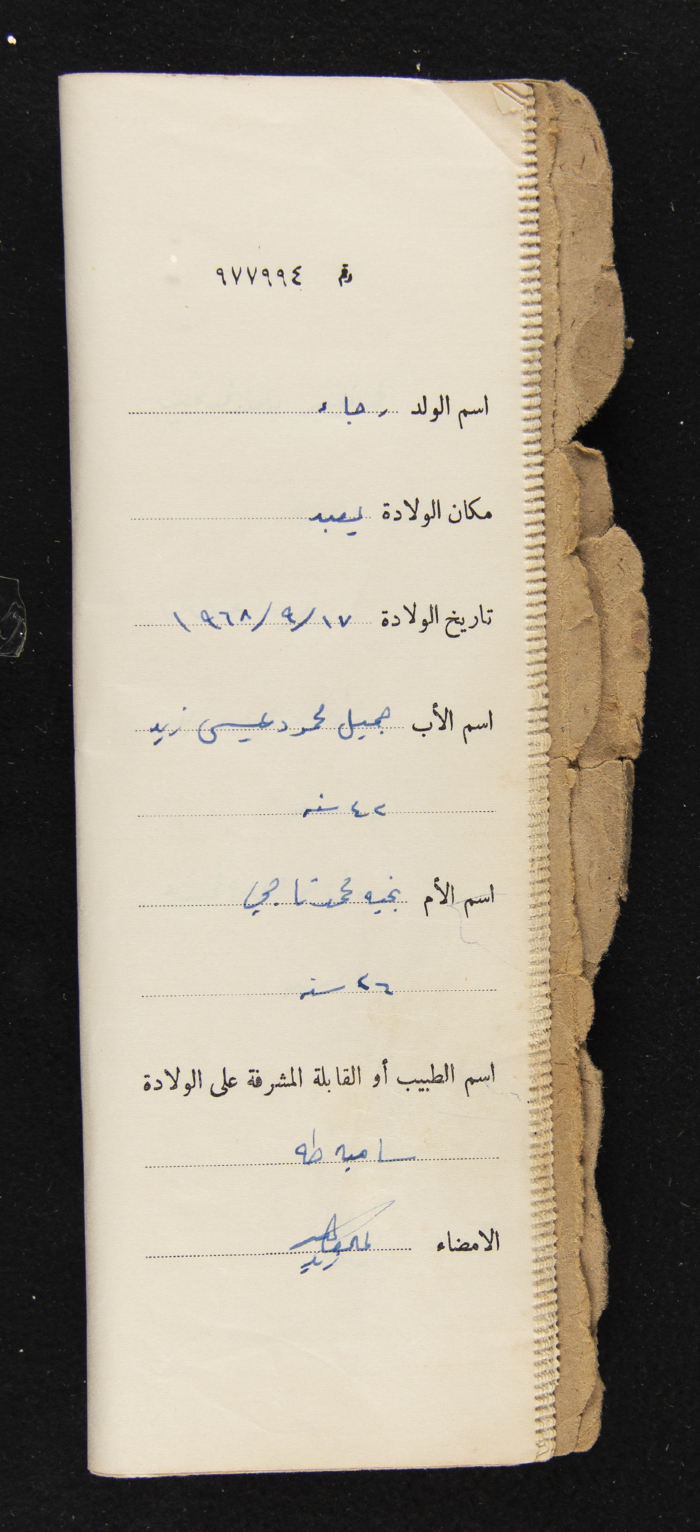 رقم ٩٧٧٩٩٤
اسم الولد رجاء
مكان الولادة يعبد
تاريخ الولادة ١٧/٩/١٩٦٨
اسم الأب جميل محمود عيسى زيد
٤٢ سنه
اسم الأم نجيه محمد تاجي
٢٦ سنه
اسم الطبيب أو القابلة المشرفة على الولادة
ساميه طه
الامضاء